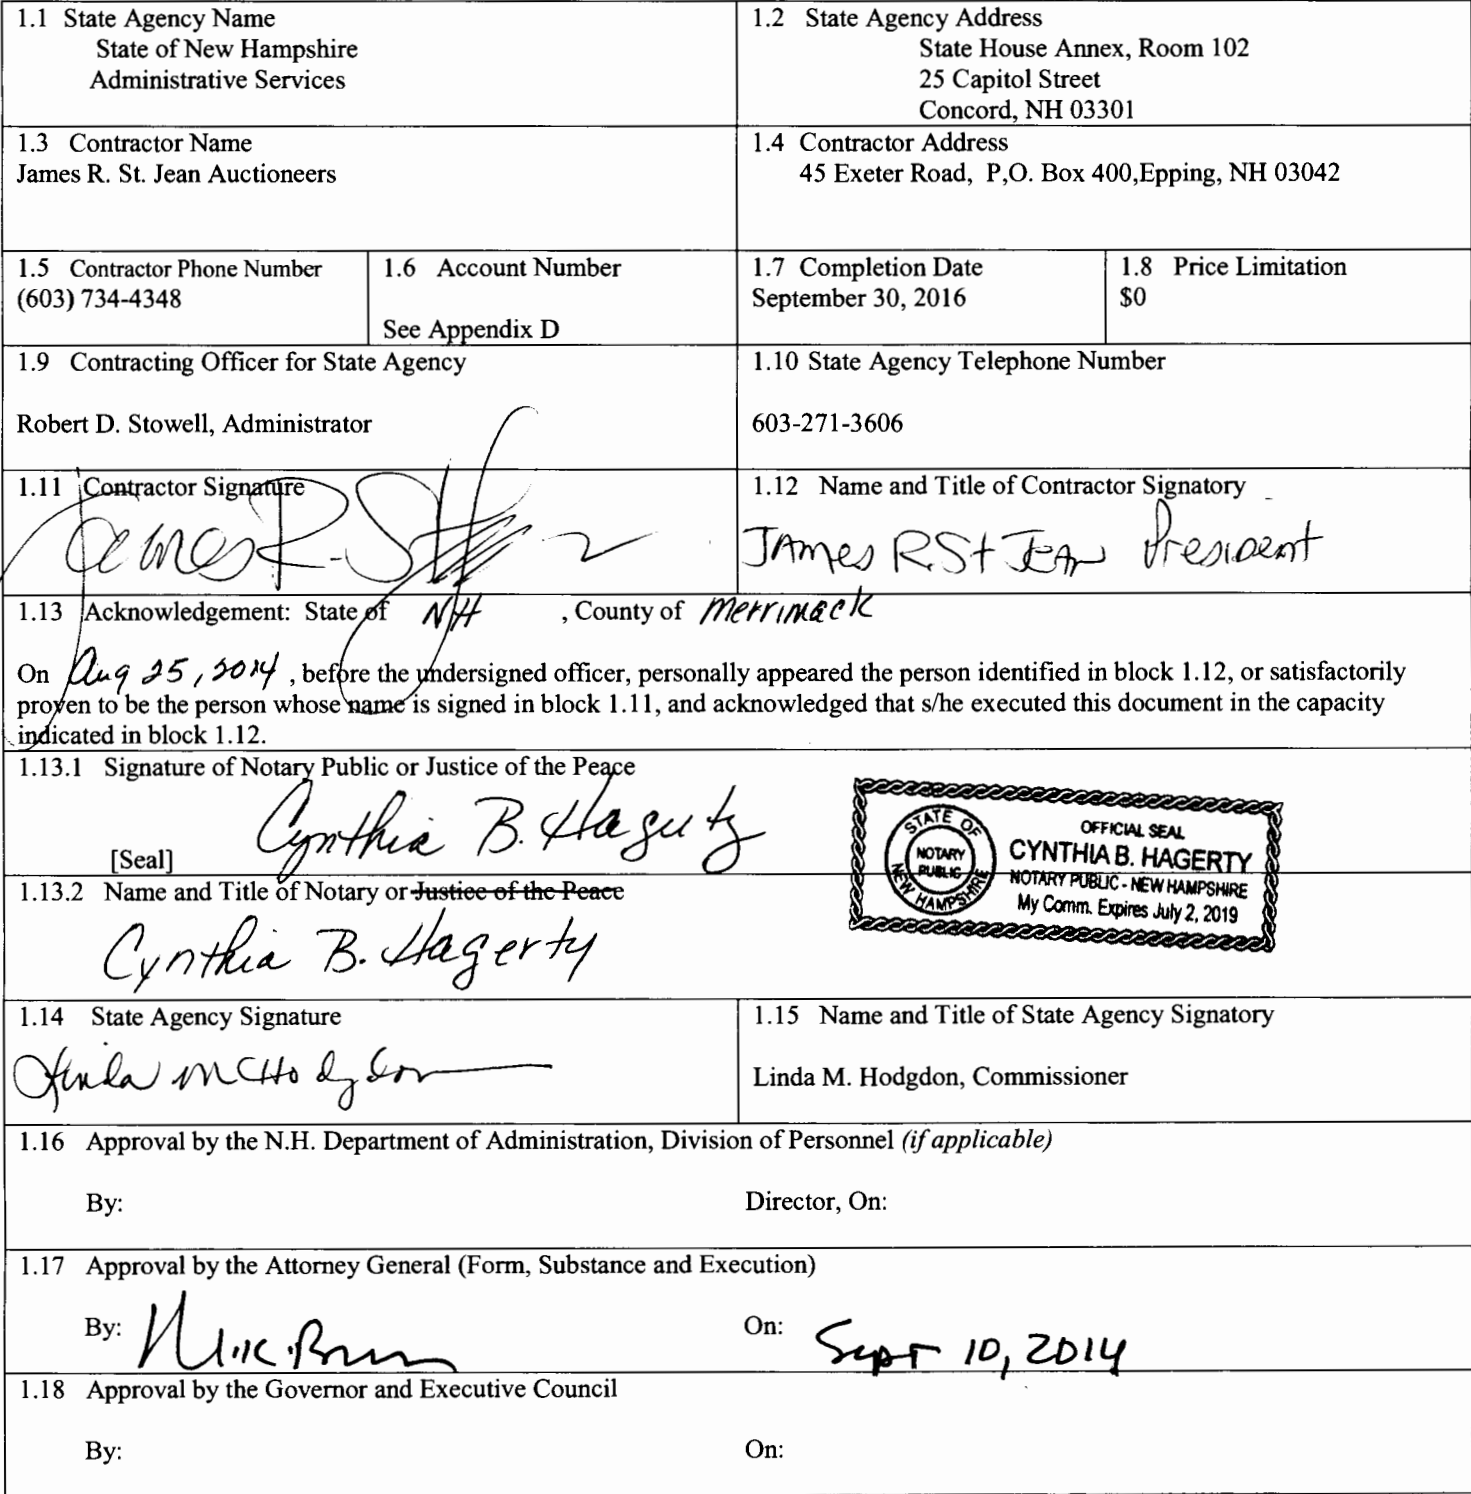 1.1 State Agency Name
State of New Hampshire
Administrative Services
1.2 State Agency Address
State House Annex, Room 102
25 Capitol Street
Concord, NH 03301
1.3 Contractor Name
James R. St. Jean Auctioneers
1.4 Contractor Address
45 Exeter Road, P,O. Box 400,Epping, NH 03042
1.5 Contractor Phone Number
(603) 734-4348
1.6 Account Number
See Appendix D
1.7 Completion Date
September 30, 2016
1.8 Price Limitation
$0
1.9 Contracting Officer for State Agency
Robert D. Stowell, Administrator
1.10 State Agency Telephone Number
603-271-3606
1.11 Contractor Signature
James R. St
1.12 Name and Title of Contractor Signatory
James R St Jean President
1.13 Acknowledgement: State of NH , County of Merrimack
On Aug 25, 2014 , before the undersigned officer, personally appeared the person identified in block 1.12, or satisfactorily
proven to be the person whose name is signed in block 1.11, and acknowledged that s/he executed this document in the capacity
indicated in block 1.12.
1.13.1 Signature of Notary Public or Justice of the Peace
Cynthia B. Hagerty
[Seal]
STATE OF NEW HAMPSHIRE
NOTARY
PUBLIC
OFFICIAL SEAL
CYNTHIA B. HAGERTY
NOTARY PUBLIC - NEW HAMPSHIRE
My Comm. Expires July 2, 2019
1.13.2 Name and Title of Notary or Justice of the Peace
Cynthia B. Hagerty
1.14 State Agency Signature
Linda M Hodgdon
1.15 Name and Title of State Agency Signatory
Linda M. Hodgdon, Commissioner
1.16 Approval by the N.H. Department of Administration, Division of Personnel (if applicable)
By:
Director, On:
1.17 Approval by the Attorney General (Form, Substance and Execution)
By:
On: Sept 10, 2014
1.18 Approval by the Governor and Executive Council
By:
On: